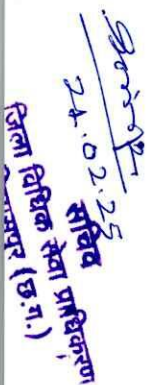 24.02.25
सचिव
जिला विधिक सेवा प्राधिकरण
(छ.ग.)